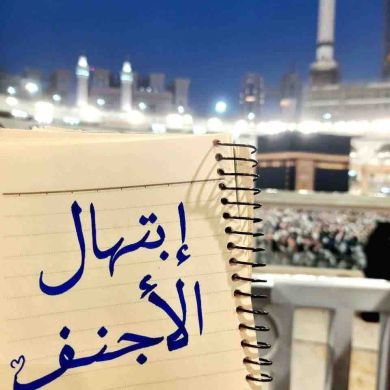 إبتهال
الأجنف